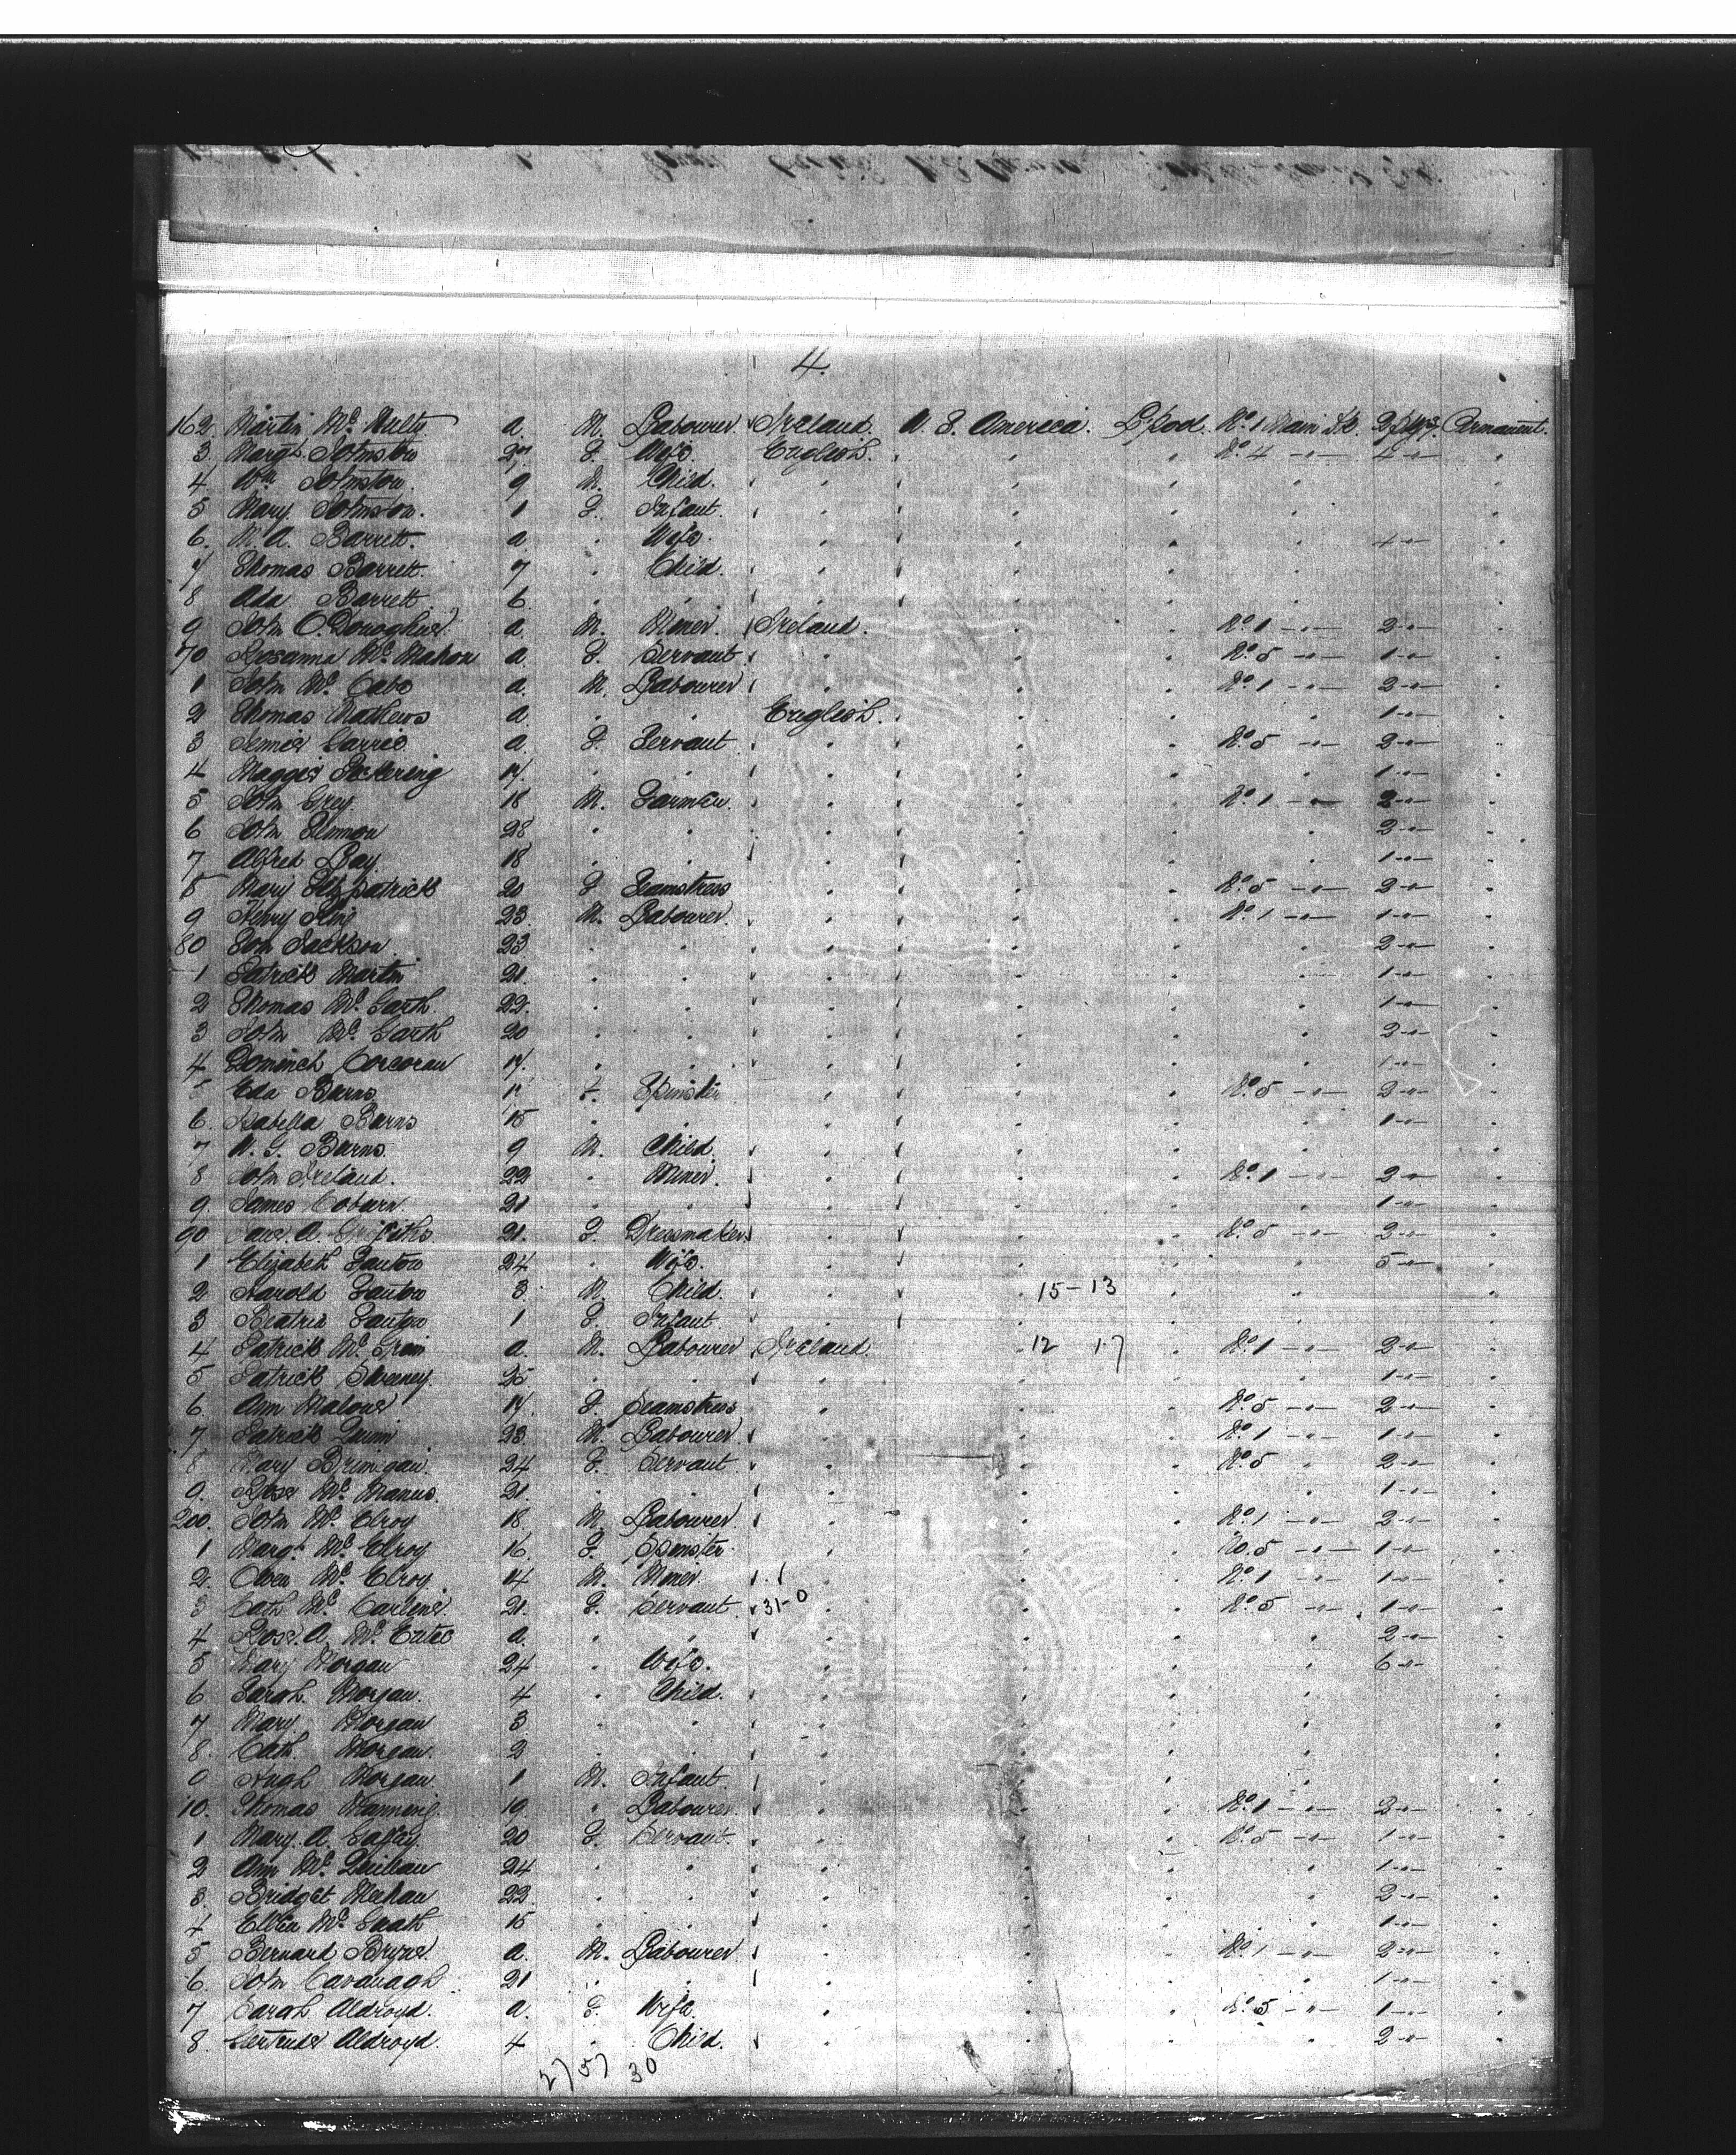 4.
162. Martin McNulty a M. Labourer Ireland U. S. America. L'pool. No. 1 Main Dk. 2 pkgs. Permanent.
3 Margt. Johnston 27 F. Wife. English. " " No. 4 -"- 4 -"- "
4 Wm. Johnston. 9 M. Child. " " " " "
5 Mary Johnston. 1 F. Infant. " " "
6. M. A. Barrett. a " Wife. " " " " 4 -"- "
7 Thomas Barrett. 7 " Child. " " " " "
8 Ada Barrett 6 " " " " " " "
9 John O. Donoghue. a M. Miner. Ireland. " " No. 1 -"- 2 -"- "
70 Rosanna Mc. Mahon a F. Servant " " " No. 5 -"- 1 -"- "
1 John Mc. Cabe a. M. Labourer " " " No. 1 -"- 2 -"- "
2 Thomas Mathews a " " English. " " " 1 -"- "
3 Jennie a. F. Servant " " " No. 5 -"- 2 -"- "
4 Maggie Pickering 17. " " " " " " 1 -"- "
5 John Grey. 18 M. Farmer. " " " No. 1 -"- 2 -"- "
6 John 28 " " " " " " 2 -"- "
7 Alfred Day 18 " " " " " " 1 -"- "
8 Mary Fitzpatrick 20 F Seamstress " " " No. 5 -"- 2 -"- "
9 Henry King 23 M. Labourer. " " " No. 1 -"- 1 -"- "
80 Jackson 23 " " " " " " 2 -"- "
1 Patrick Martin 21. " " " " " " 1 -"- "
2 Thomas Mc. Garth 22. " " " " " " 1 -"- "
3 John Mc. Garth 20 " " " " " " 2 -"- "
4 Dominick Corcoran 17. " " " " " " 1 -"- "
Eda Barns 17 F. Spinster " " " No. 5 -"- 2 -"- "
6. Isabella Barns 15 " " " " " " 1 -"- "
7 W. G. Barns. 9 M. Child. " " " " "
8 John Ireland. 22 " Miner. " " " No. 1 -"- 2 -"- "
9. James Coburn. 21 " " " " " " 1 -"- "
90 Jane. A. Griffiths 21. F. Dressmaker. " " " No. 5 -"- 2 -"- "
1 Elizabeth 24 " Wife. " " " " 5 -"- "
2 Harold 3 M. Child. " 15-13 " " "
3 Beatrice 1 F. Infant. " " " " "
4 Patrick Mc. a. M. Labourer Ireland. 12 17 " No. 1 -"- 2 -"- "
5 Patrick Sweeney. 25 " " " " " " 1 -"- "
6. Ann Malone 17. F. Seamstress " " " No. 5 -"- 2 -"- "
7 Patrick Quinn 23. M. Labourer. " " " No. 1 -"- 1 -"- "
8 Mary Brinigan. 24 F. Servant " " " No. 5 " 2 -"- "
9. Rose Mc. Manus. 21. " " " " " " 1 -"- "
200. John Mc. Elroy 18 M. Labourer. " " " No. 1 -"- 2 -"- "
1 Margt. Mc. Elroy 16. F. Spinster. " " " No. 5 -"- 1 -"- "
2. Owen Mc. Elroy. 14 M. Miner. " " " No. 1 -"- 1 -"- "
3 Cath. Mc. 21. F. Servant. 31-0 " " No. 5 -"- 1 -"- "
4 Rose. A. Mc. a. " " " " " " 2 -"- "
5 Mary Morgan 24 " Wife. " " " " 6 -"- "
6 Sarah. Morgan. 4 " Child. " " " " "
7 Mary. Morgan 3 " " " " " " "
8. Cath. Morgan. 2 " " " " " " "
9 Hugh Morgan. 1 M. Infant. " " " " "
10. Thomas Manning. 19 " Labourer. " " " No. 1 -"- 2 -"- "
1 Mary. A. Gaffey. 20 F. Servant. " " " No. 5 -"- 1 -"- "
2 Ann Mc. Quillan 24 " " " " " " 1 -"- "
3. Bridget Meehan 22. " " " " " " 2 -"- "
4 Ellen Mc. 15 " " " " " " 1 -"- "
5 Bernard Bryne a. M. Labourer " " " No. 1 -"- 2 -"- "
6. John Cavanagh. 21 " " " " " " 1 -"- "
7 Sarah Aldroyd. a. F. Wife. " " " No. 5 -"- 1 -"- "
8. Gertrude Aldroyd. 4 " Child. " " " " 2 -"- "
27 57 30